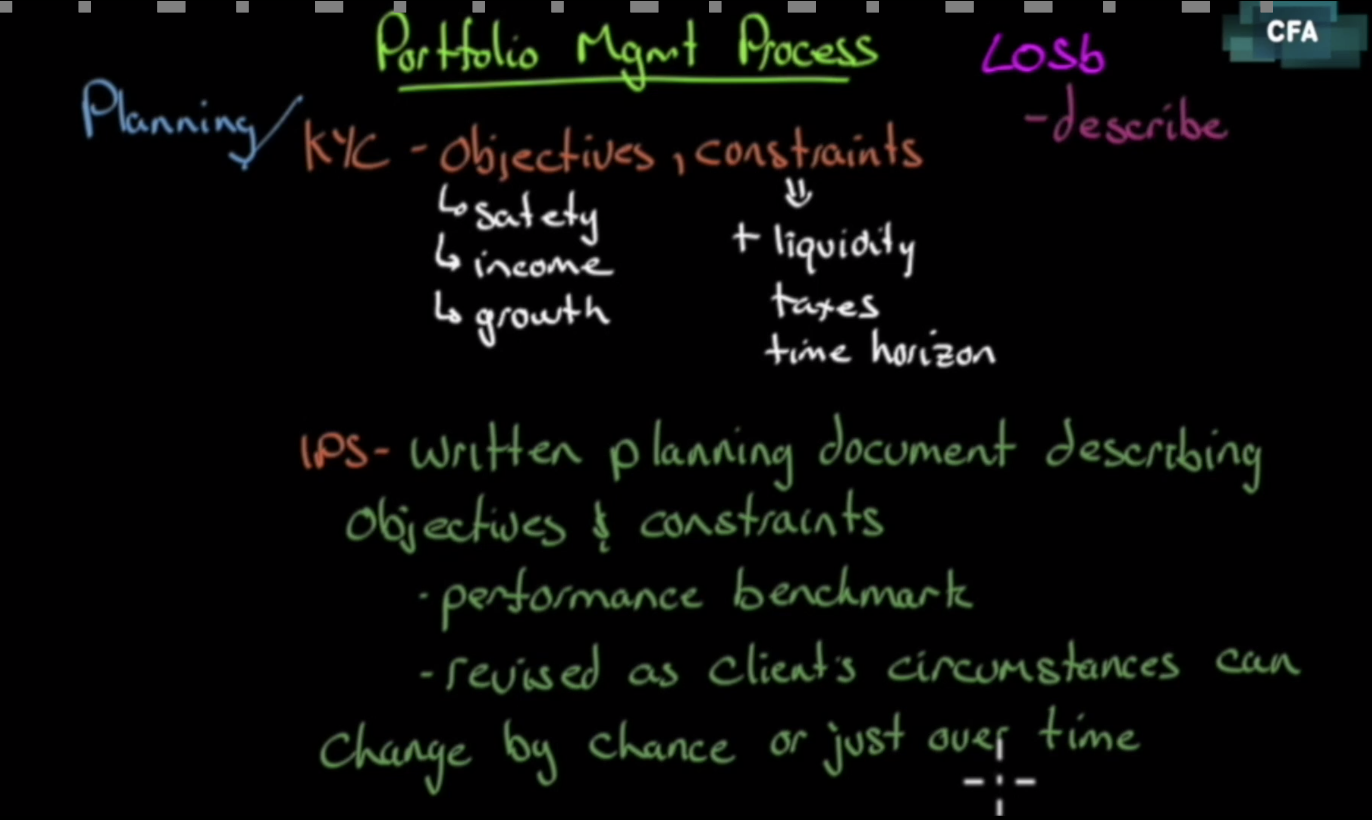 Portfolio Mgmt Process
LOSb
CFA
Planning
- describe
KYC - Objectives, constraints
↳ safety
↳ income
↳ growth
⇓
+ liquidity
taxes
time horizon
IPS - written planning document describing
Objectives & constraints
· performance benchmark
- revised as client's circumstances can
change by chance or just over time